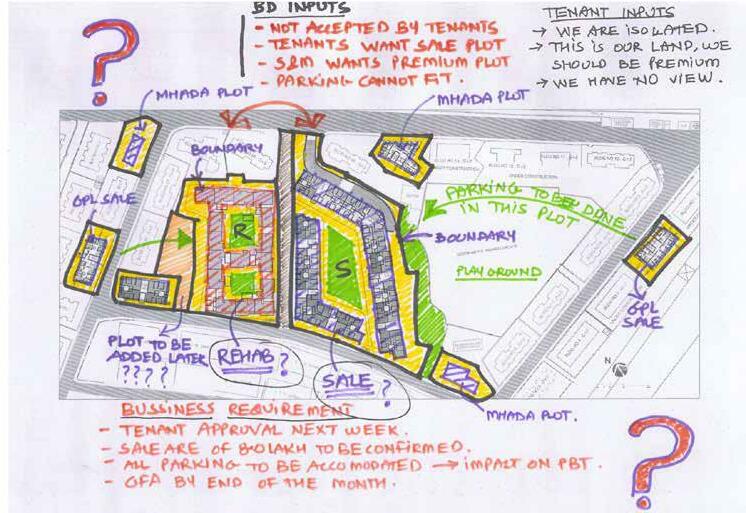 BD INPUTS
- NOT ACCEPTED BY TENANTS
- TENANTS WANT SALE PLOT
- S&M WANTS PREMIUM PLOT
- PARKING CANNOT FIT.
TENANT INPUTS
→ WE ARE ISOLATED.
→ THIS IS OUR LAND, WE
SHOULD BE PREMIUM
→ WE HAVE NO VIEW.
?
MHADA PLOT
MHADA PLOT
BOUNDARY
GPL SALE
PARKING TO BE DONE
IN THIS PLOT
R
S
BOUNDARY
PLAY GROUND
GPL
SALE
UNDER CONSTRUCTION
N
PLOT TO BE
ADDED LATER
????
REHAB ?
SALE ?
MHADA PLOT.
BUSSINESS REQUIREMENT
- TENANT APPROVAL NEXT WEEK.
- SALE ARE OF 8.0 LAKH TO BE CONFIRMED.
- ALL PARKING TO BE ACCOMODATED → IMPACT ON PBT.
- OFA BY END OF THE MONTH.
?